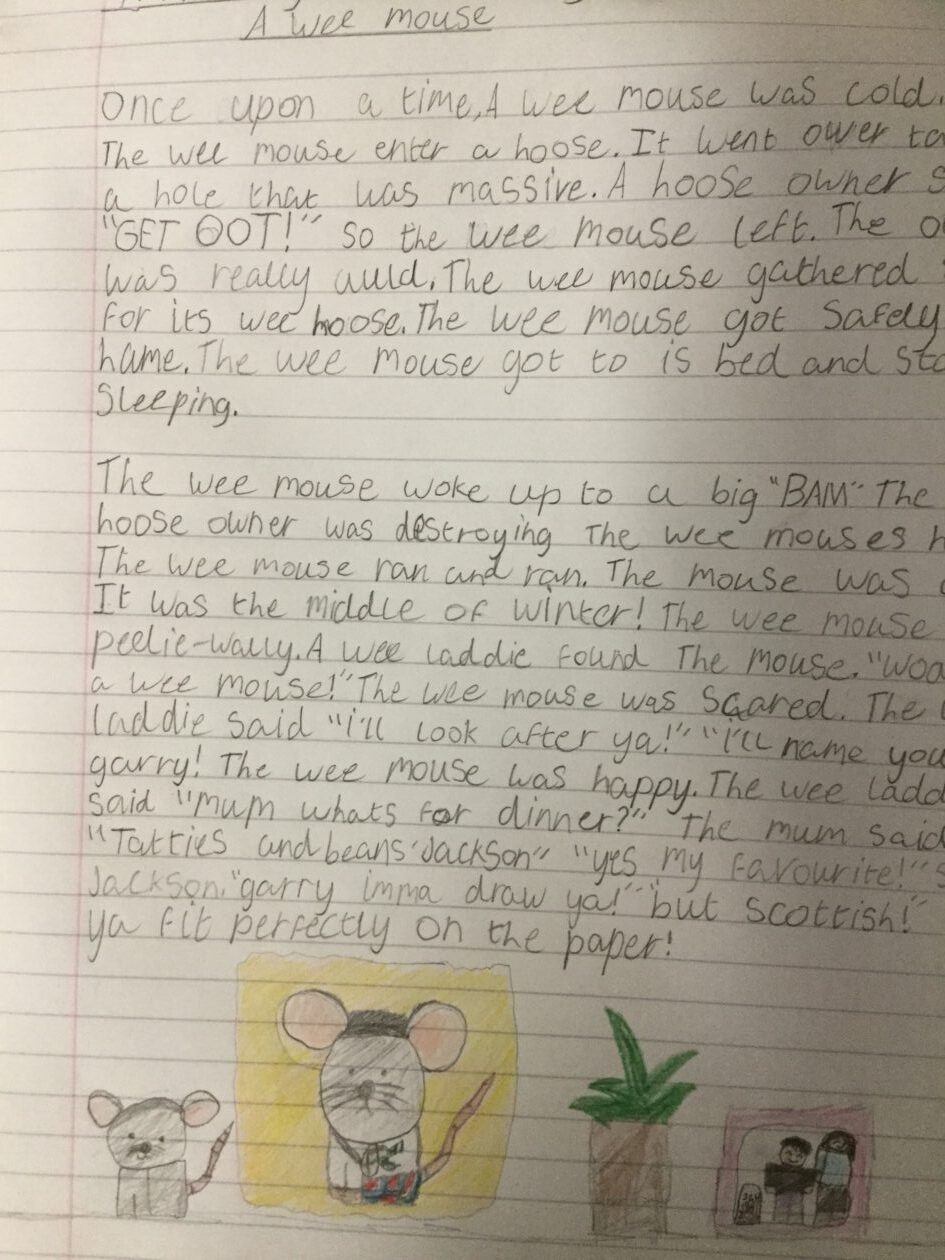 A wee mouse
Once upon a time, A wee mouse was cold.
The wee mouse enter a hoose. It went ower ta
a hole that was massive. A hoose owner
"GET OOT!" So the wee mouse left. The
was really auld. The wee mouse gathered
for its wee hoose. The wee mouse got safely
hame. The wee mouse got to is bed and
sleeping.
The wee mouse woke up to a big "BAM" The
hoose owner was destroying The wee mouses
The wee mouse ran and ran. The mouse was
It was the middle of winter! The wee mouse
peelie-wally. A wee laddie found The mouse.
a wee mouse!" The wee mouse was scared. The
laddie said "i'll look after ya!" "i'll name you
garry! The wee mouse was happy. The wee
said "mum whats for dinner?" The mum said
"Tatties and beans Jackson" "yes my favourite!"
Jackson. "garry imma draw ya!" "but scottish!"
ya fit perfectly on the paper!